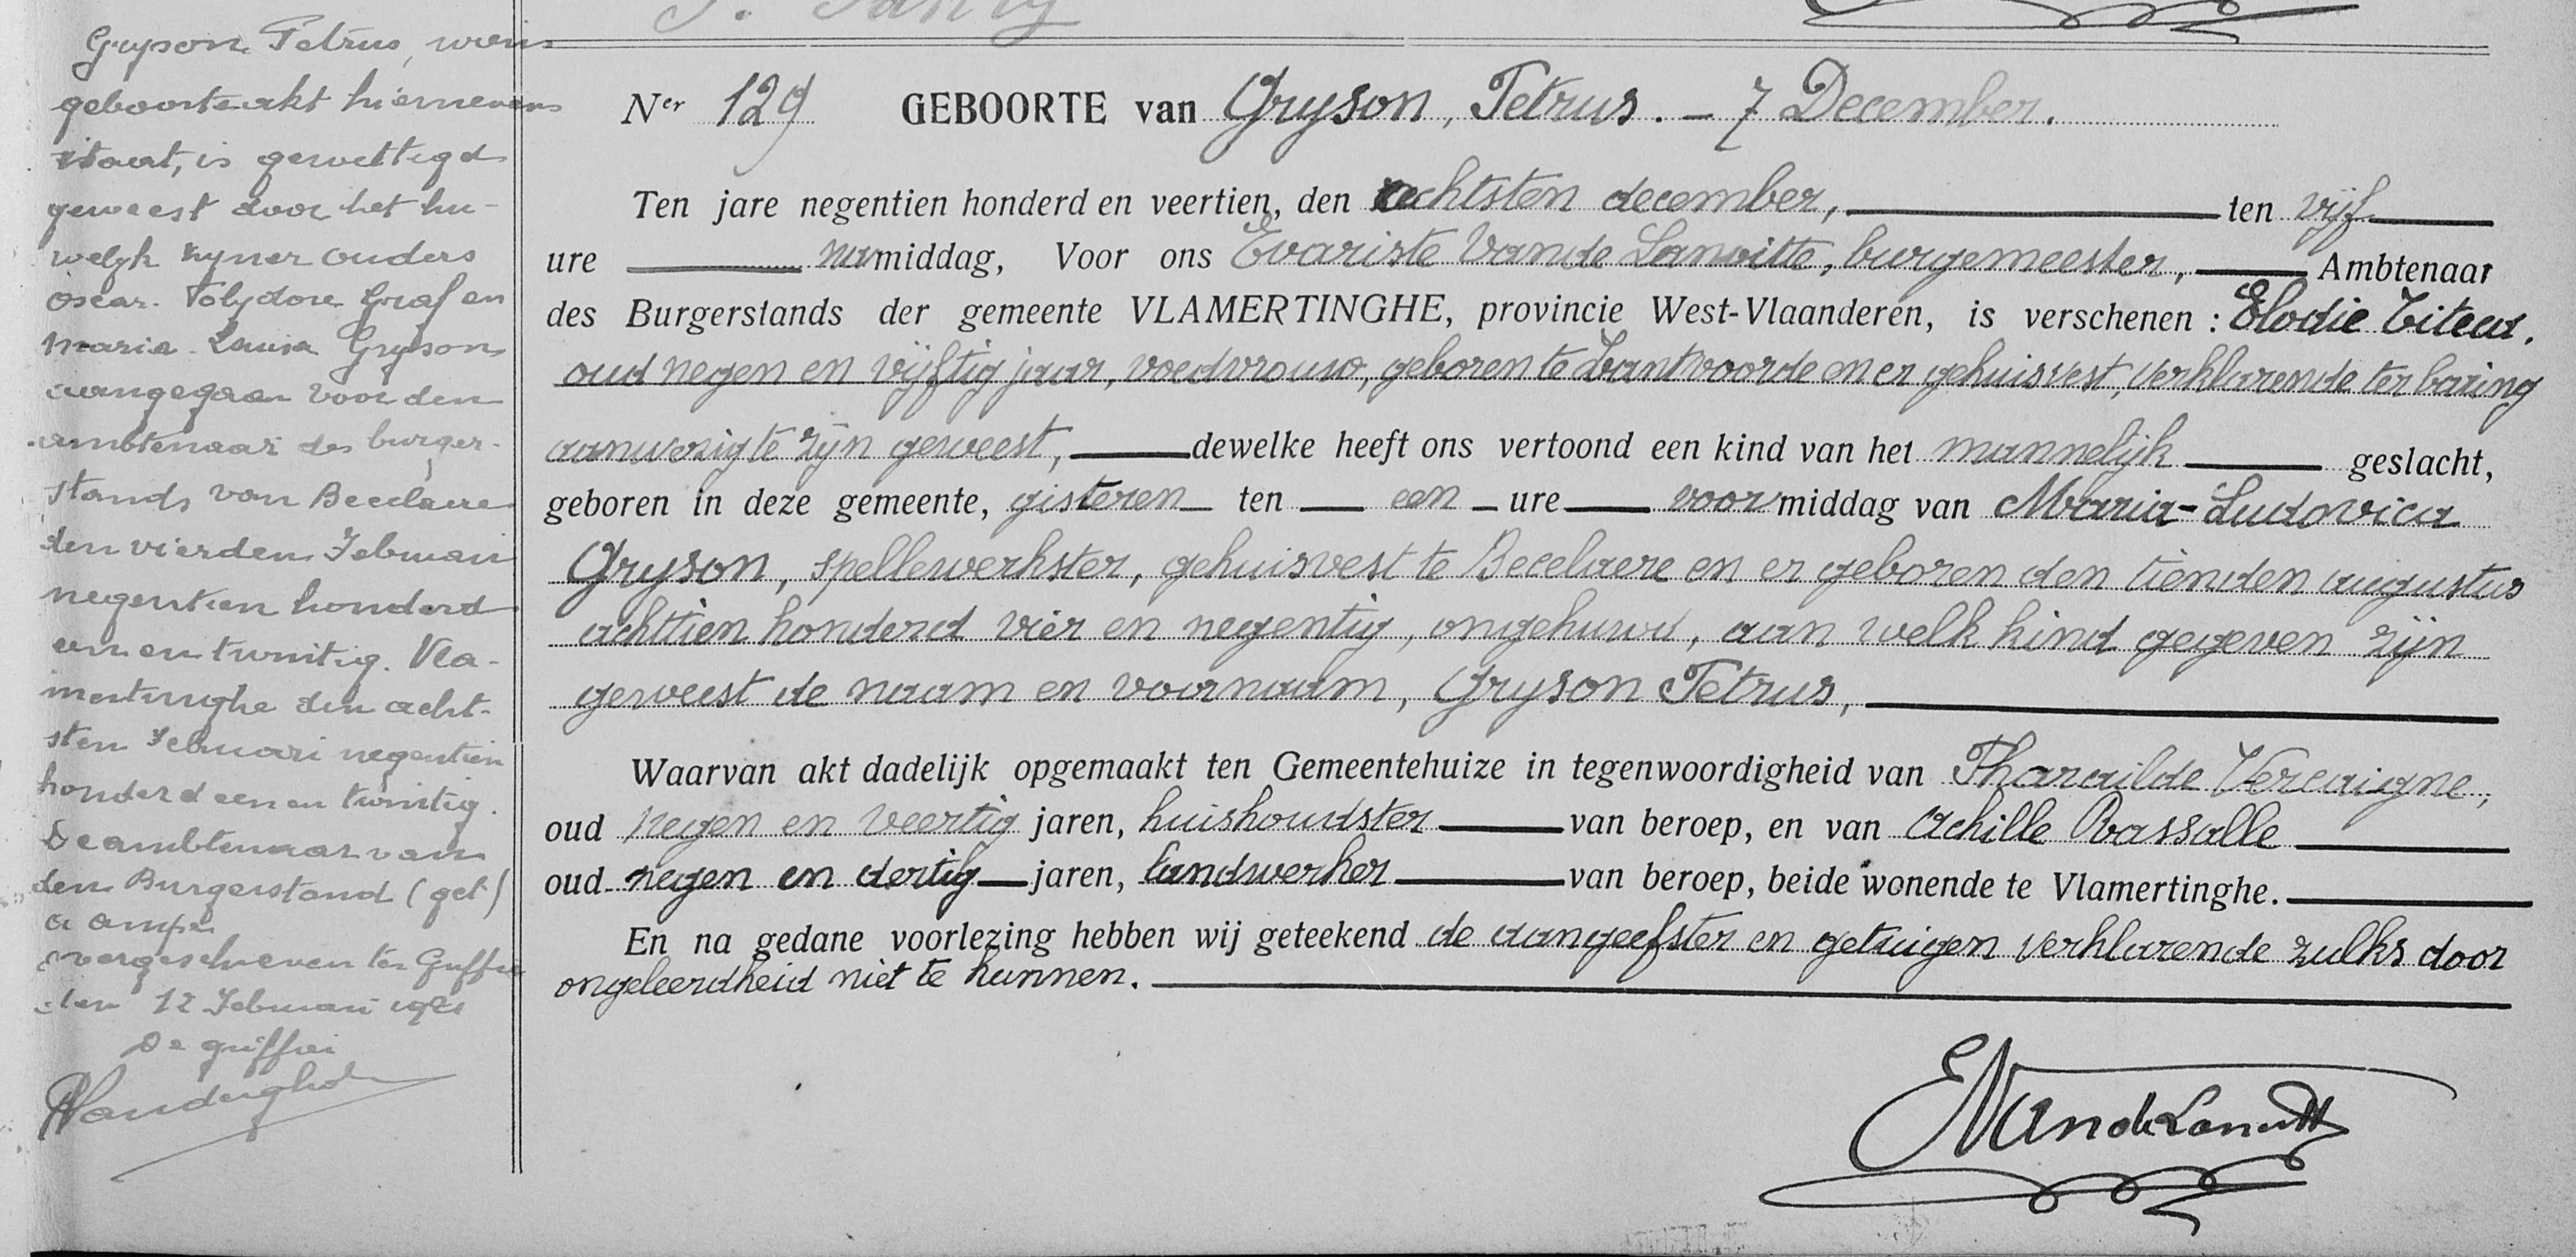 Gryson Petrus, wiens
geboorteakt hiernevens
staat, is gewettigd
geweest door het hu-
welijk zijner ouders
Oscar Polydore Graf en
Maria Louisa Gryson
aangegaan voor den
ambtenaar des burger-
stands van Becelaere
den vierden Februari
negentien honderd
een en twintig. Vla-
mertinghe den acht-
sten Februari negentien
honderd een en twintig.
De ambtenaar van
den Burgerstand (get)
overgeschreven ter Griffie
den 12 Februari 1921
De griffier
Ner 129 GEBOORTE van Gryson, Petrus. — 7 December.
Ten jare negentien honderd en veertien, den achtsten december, ten vijf
ure namiddag, Voor ons Evariste Vande Lanoitte, burgemeester, Ambtenaar
des Burgerstands der gemeente VLAMERTINGHE, provincie West-Vlaanderen, is verschenen : Elodie Titeca.
oud negen en vijftig jaar, voedvrouw, geboren te Zantvoorde en er gehuisvest, verklarende ter baring
aanwezig te zijn geweest, dewelke heeft ons vertoond een kind van het mannelijk geslacht,
geboren in deze gemeente, gisteren ten een ure voormiddag van Maria-Ludovica
Gryson, spellewerkster, gehuisvest te Becelaere en er geboren den tienden augustus
achttien honderd vier en negentig, ongehuwd, aan welk kind gegeven zijn
geweest de naam en voornaam, Gryson Petrus,
Waarvan akt dadelijk opgemaakt ten Gemeentehuize in tegenwoordigheid van Pharaïlde Vereaigne,
oud negen en veertig jaren, huishoudster van beroep, en van Achille Bassalle
oud negen en dertig jaren, landswerker van beroep, beide wonende te Vlamertinghe.
En na gedane voorlezing hebben wij geteekend de aangeefster en getuigen verklarende zulks door
ongeleerdheid niet te kunnen.